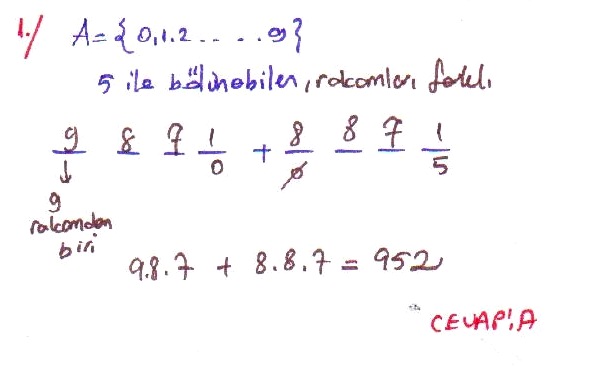 1./ A = {0,1,2.....9}
5 ile bölünebilen, rakamları farklı
9 8 7 1 + 8 8 7 1
0 0 5
9
rakamdan
biri
9.8.7 + 8.8.7 = 952
CEVAP: A